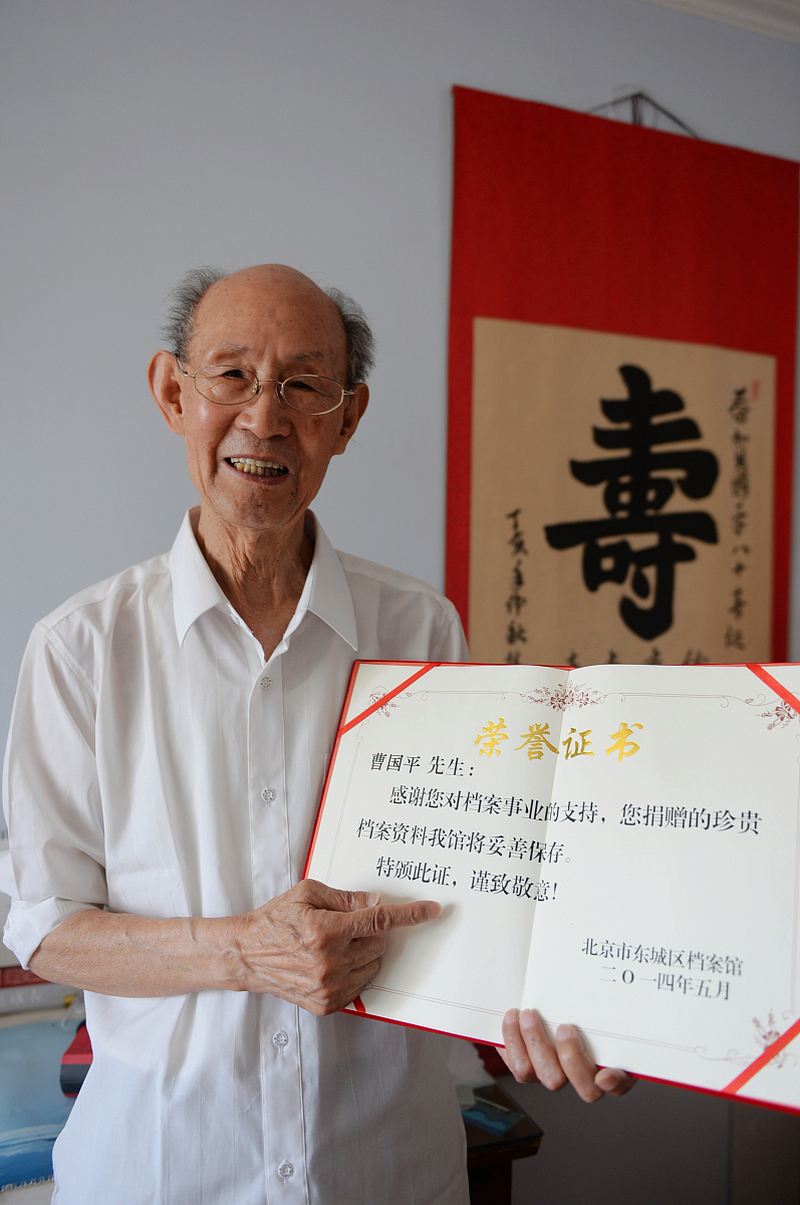 壽
丁亥年仲秋
荣誉证书
曹国平 先生：
感谢您对档案事业的支持，您捐赠的珍贵
档案资料我馆将妥善保存。
特颁此证，谨致敬意！
北京市东城区档案馆
二〇一四年五月